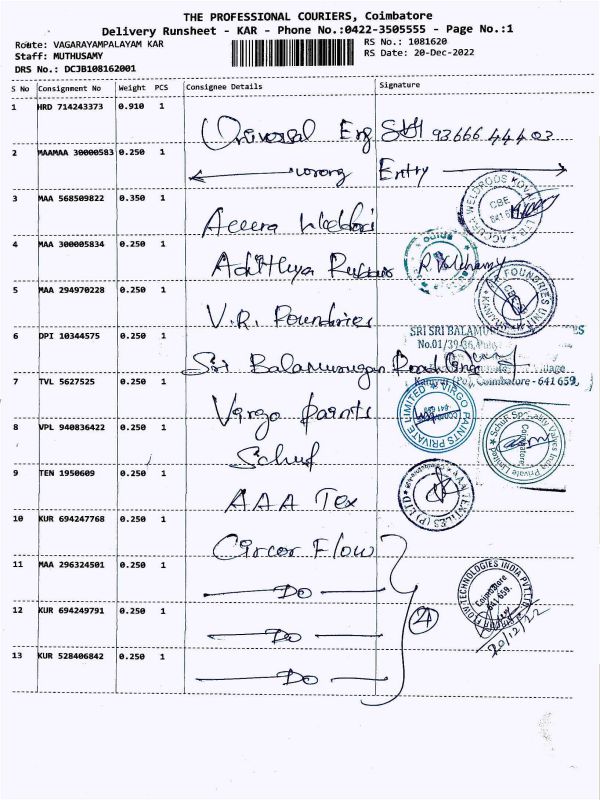 THE PROFESSIONAL COURIERS, Coimbatore
Delivery Runsheet - KAR - Phone No.:0422-3505555 - Page No.:1
Route: VAGARAYAMPALAYAM KAR
RS No.: 1081620
Staff: MUTHUSAMY
RS Date: 20-Dec-2022
DRS No.: DCJB108162001
S No Consignment No Weight PCS Consignee Details Signature
1 HRD 714243373 0.910 1
Universal Eng 93666 44403
2 MAAMAA 30000583 0.250 1
wrong Entry
3 MAA 568509822 0.350 1
Accura Weldrods
ACCURA WELDRODS KOVAI
CBE
4 MAA 300005834 0.250 1
Adithya
5 MAA 294970228 0.250 1
V.R. Foundries
FOUNDRIES
CBE
6 DPI 10344575 0.250 1
SRI SRI BALAMURUGAN
No.01/39
Sri Balamurugan
Village
Kaniyur (Po), Coimbatore - 641 659.
7 TVL 5627525 0.250 1
Virgo Paints
VIRGO PAINTS PRIVATE LIMITED
8 VPL 940836422 0.250 1
Schuf
Schuf Speciality Valves India Private Limited
Coimbatore
9 TEN 1950609 0.250 1
AAA Tex
AAA TEXTILES (P) LTD
10 KUR 694247768 0.250 1
Circor Flow
11 MAA 296324501 0.250 1
Do
FLOW TECHNOLOGIES INDIA PVT. LTD
Coimbatore
641 659.
12 KUR 694249791 0.250 1
Do
4
20/12/22
13 KUR 528406842 0.250 1
Do